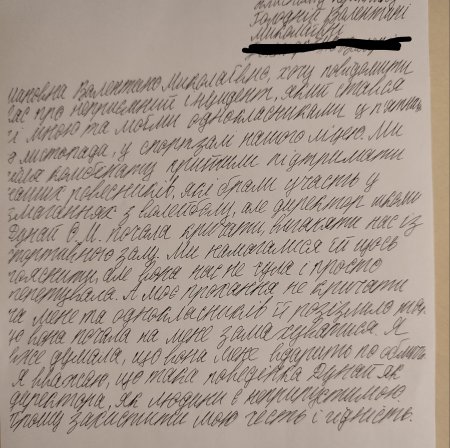 Голодній Валентині
Миколаївні
Шановна Валентино Миколаївно, хочу повідомити
Вас про неприємний інцидент, який стався
зі мною та моїми однокласниками у п'ятницю
листопада, у спортзалі нашого ліцею. Ми
командою прийшли підтримати
наших ровесників, які брали участь у
змаганнях з волейболу, але директор школи
Дунай О. И. почала кричати, виганяти нас із
спортивного залу. Ми намагалися їй щось
пояснити, але вона нас не чула і просто
А моє прохання не кричати
на мене та однокласників її розізлило так,
що вона почала на мене замахуватися. Я
вже думала, що вона мене вдарить по обличчі
Я вважаю, що така поведінка Дунай як
директора, як людини є неприпустимою.
Прошу захистити мою честь і гідність.